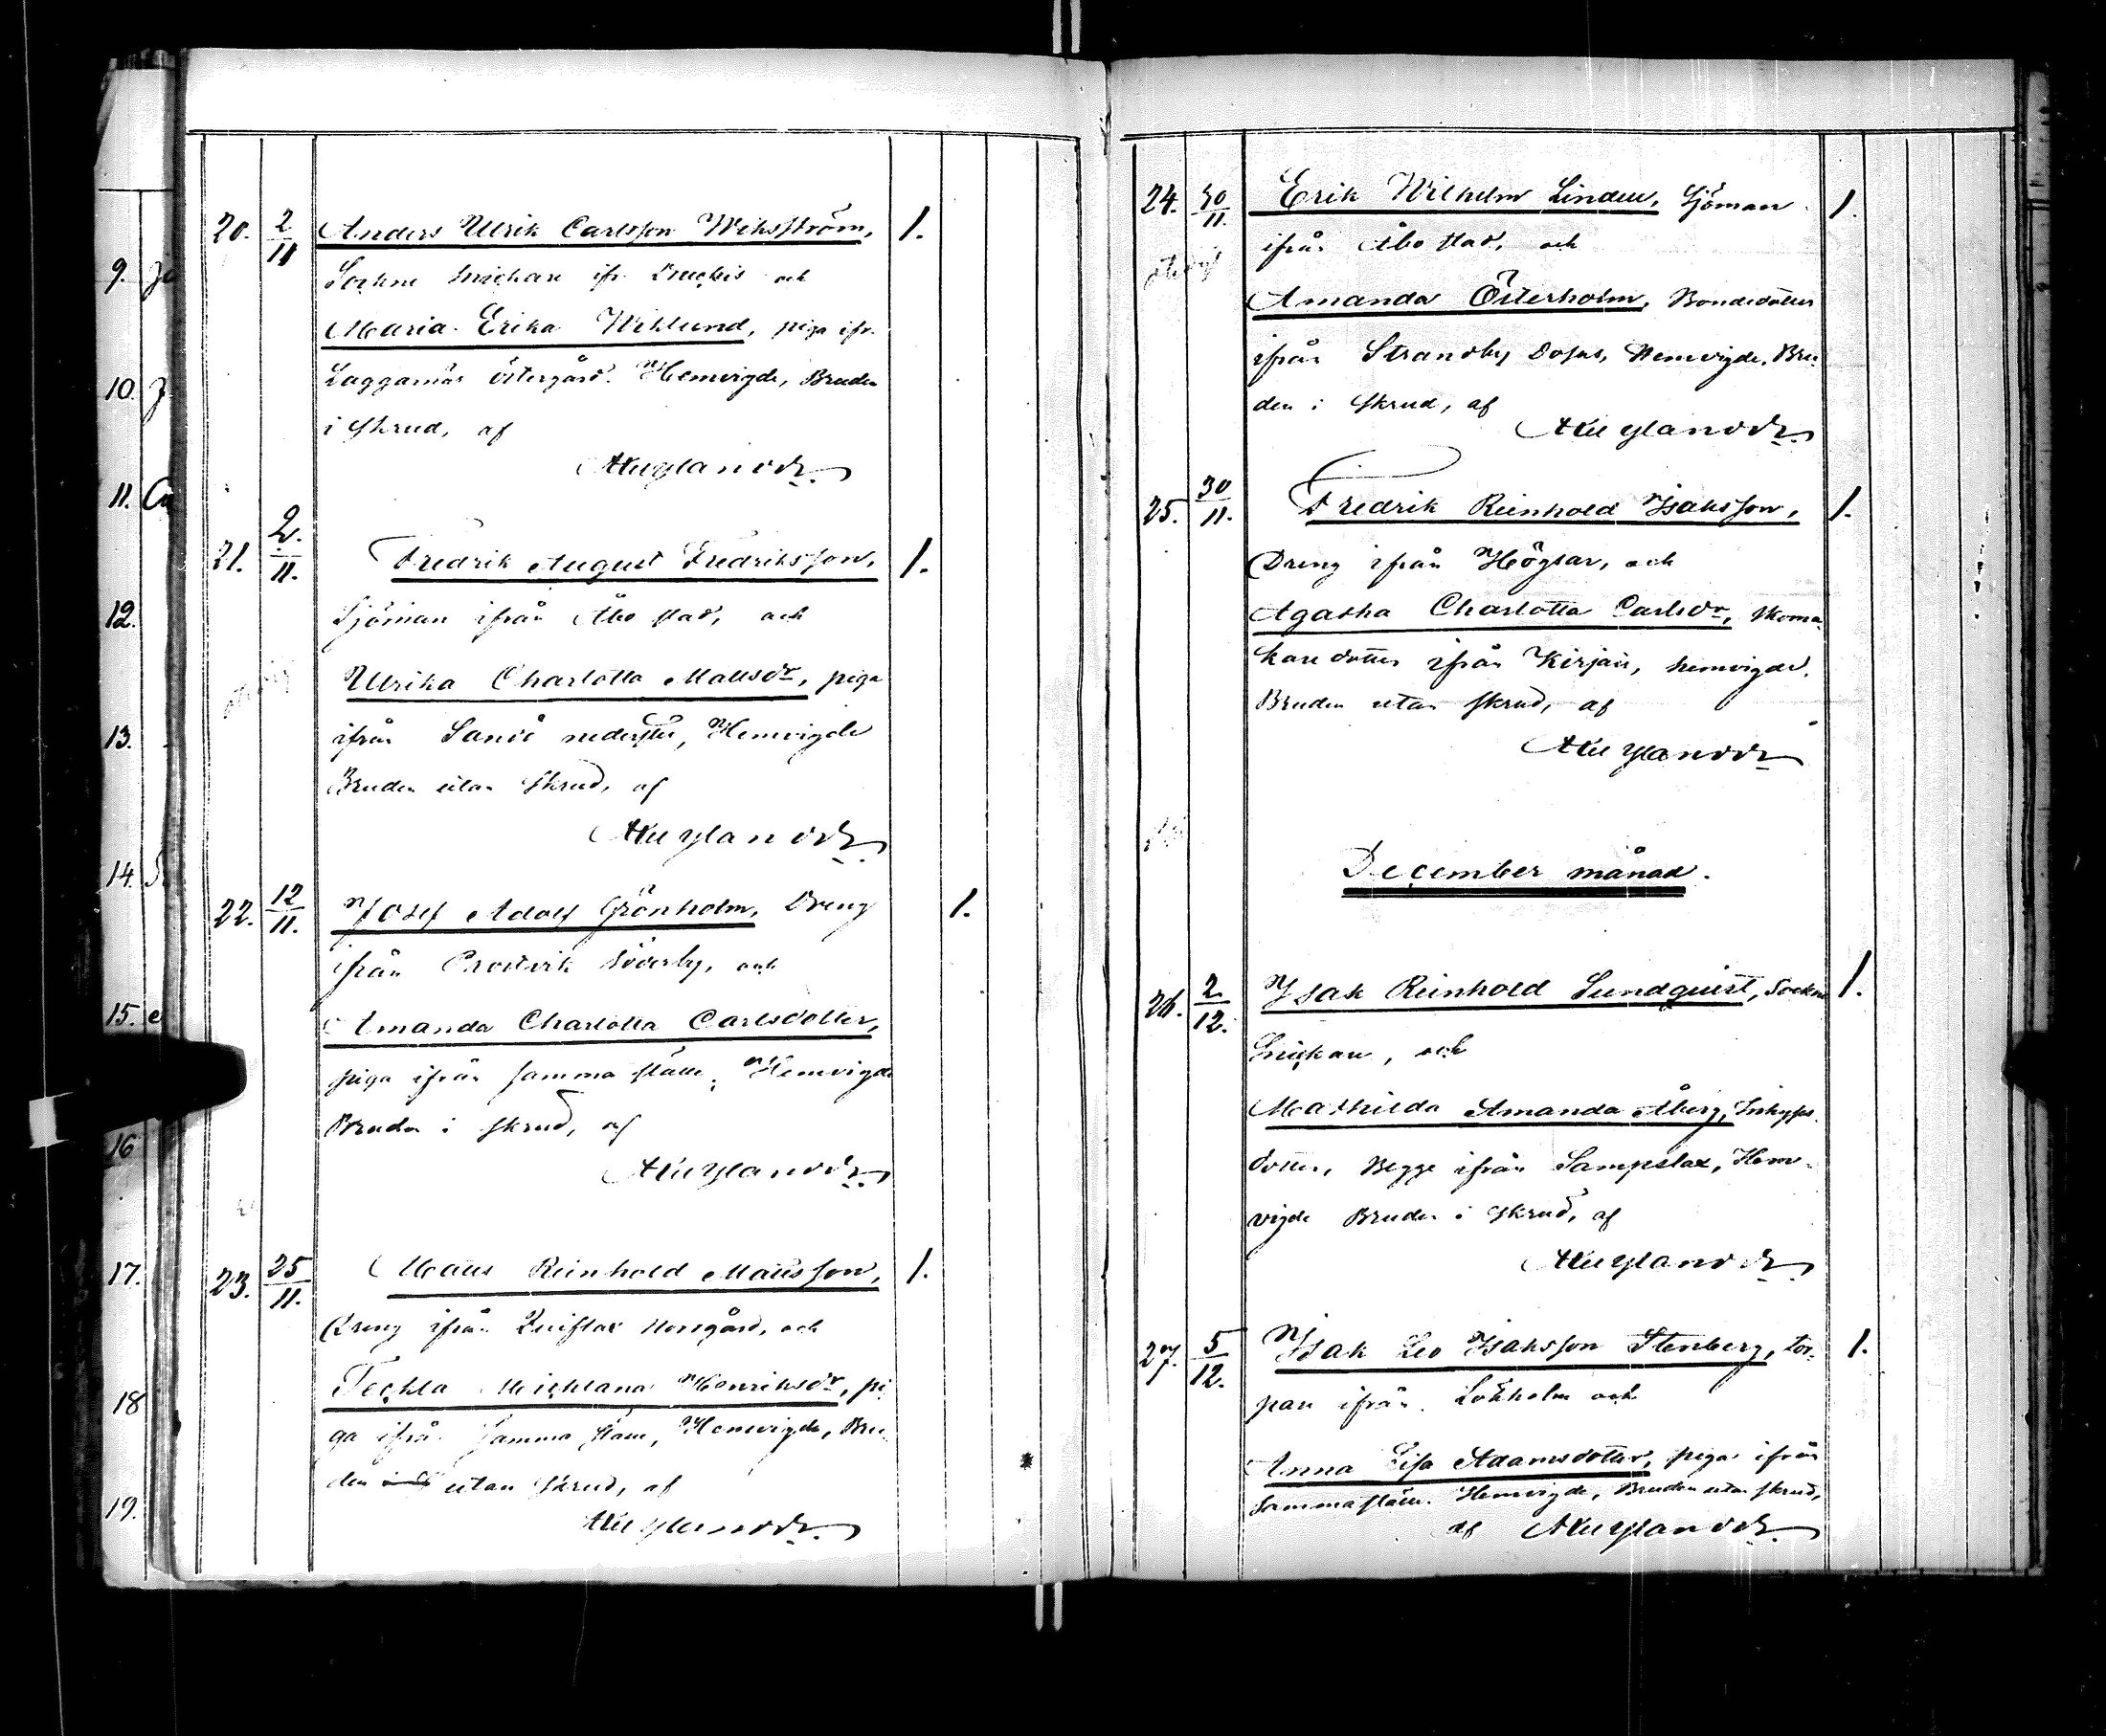 20. 2/11 Anders Ulrik Carlsson Wiksström, 1.
Sockne snickare ifr. och
Maria Erika Wiklund, piga ifr.
Laggarnäs östergård. Hemvigde, Bruden
i skrud, af
21. 2./11. Fredrik August Fredriksson, 1.
Sjöman ifrån Åbo stad, och
Ulrika Charlotta Mattsdr, piga
ifrån Sandö nederste, Hemvigde
Bruden utan skrud, af
22. 12/11. Josef Adolf Grönholm, Dreng 1.
ifrån Prostvik Söderby, och
Amanda Charlotta Carlsdotter,
piga ifrån samma ställe, Hemvigde
Bruden i skrud, af
23. 25/11. Matts Reinhold Mattsson, 1.
Dreng ifrån Kniflax Norrgård, och
Teckla Michlana Henriksdr, pi-
ga ifrån samma ställe, Hemvigde, Bru-
den utan skrud, af
24. 30/11. Erik Wilhelm Linden, Sjöman 1.
ifrån Åbo stad, och
Amanda Österholm, Bondedotter
ifrån Strandby Hemvigde, Bru-
den i skrud, af
25. 30/11. Fredrik Reinhold Isaksson, 1.
Dreng ifrån Högsar, och
Agatha Charlotta Carlsdr, skoma-
kare dotter ifrån Kirjais, hemvigde.
Bruden utan skrud, af
December månad.
26. 2/12. Isak Reinhold Sundquist, Sockne 1.
Snickare, och
Mathilda Amanda Åberg, Inhyses
dotter, Begge ifrån Sampslax, Hem-
vigde Bruden i skrud, af
27. 5/12. Isak Leo Isaksson Stenberg, tor- 1.
pare ifrån Lökholm och
Anna Lisa Adamsdotter, piga ifrån
samma ställe. Hemvigde, Bruden utan skrud,
af
9.
10.
11.
12.
13.
14.
15.
16
17.
18
19.